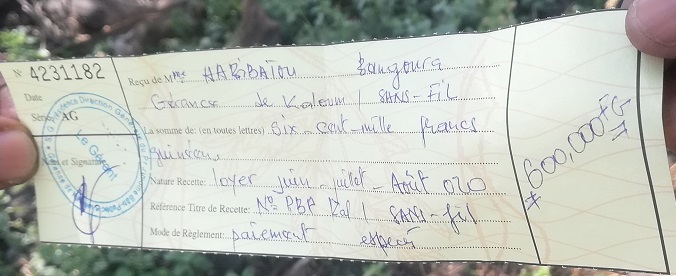 N° 4231182
Date
Série AG
Nom et Signature
Le Gérant
Reçu de Mme HABIBATOU Bangoura
Gérance de Kaloum / SANS-FIL
La somme de: (en toutes lettres) Six-cent-mille francs
guinéens
Nature Recette: loyer juin-juillet-Août 020
Référence Titre de Recette: N° PBP Kal / SANS-fil
Mode de Règlement: paiement espèces
# 600,000 FG =